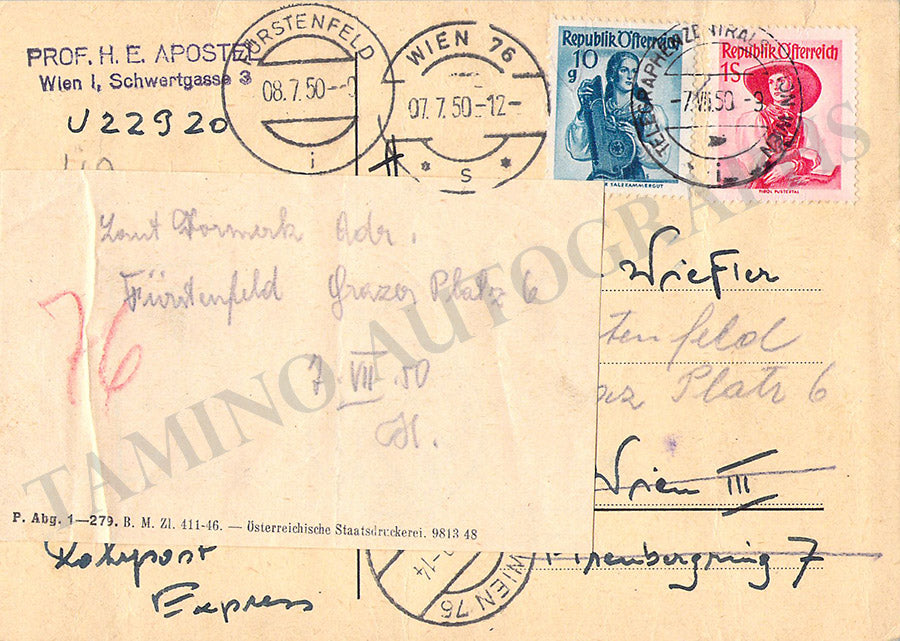 PROF. H. E. APOSTEL
Wien I, Schwertgasse 3
U 22 9 20
FÜRSTENFELD
08.7.50
i
WIEN 76
07.7.50-12-
* s *
Republik Österreich
10
g
SALZKAMMERGUT
Republik Österreich
1S
TIROL PUSTERTAL
TELEGRAPHENZENTRALSTATION WIEN
-7.VII.50.-9
· i ·
Laut Vormerk Adr.
Fürstenfeld Grazer Platz 6
7. VII. 50
H.
76
P. Abg. 1—279. B. M. Zl. 411-46. — Österreichische Staatsdruckerei. 9813 48
Wiefler
tenfeld
az Platz 6
Wien III
7
Rohrpost
Express
WIEN 76
-14
TAMINO AUTOGRAPHS